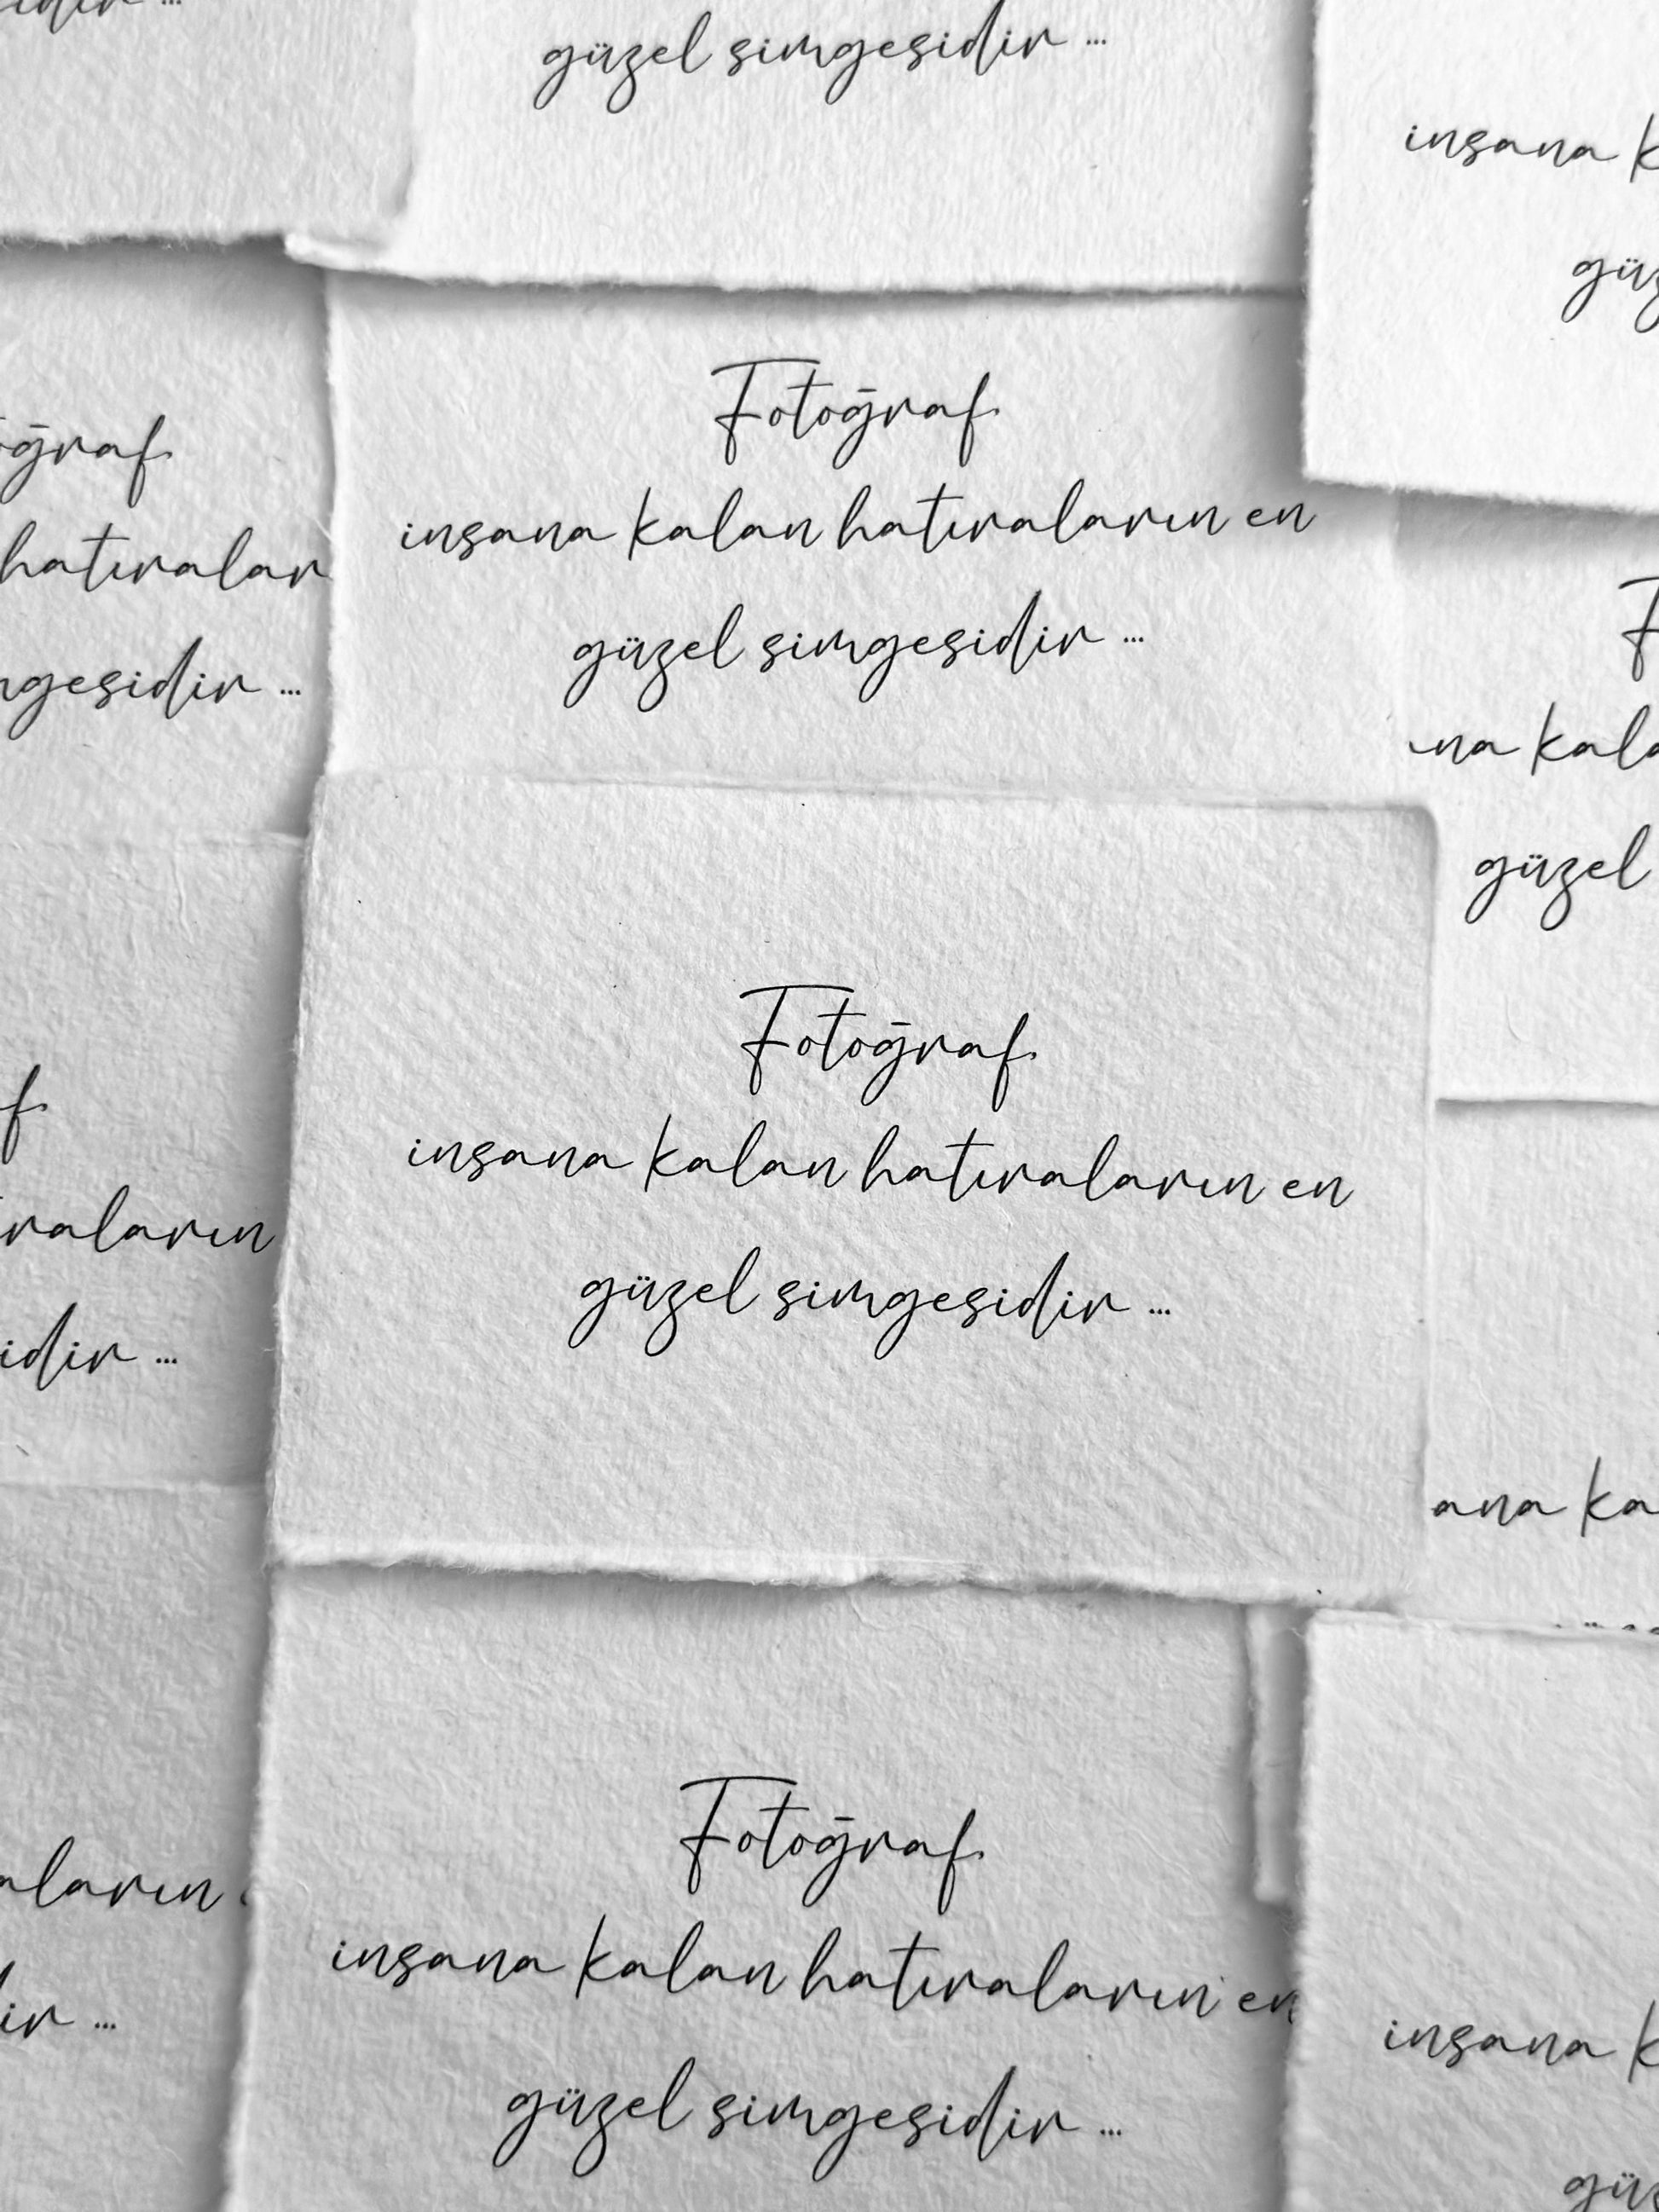 sidir ...
güzel simgesidir ...
insana k
güz
Fotoğraf
insana kalan hatıraların en
güzel simgesidir ...
oğraf
hatıralar
mgesidir ...
F
na kala
güzel
Fotoğraf
insana kalan hatıraların en
güzel simgesidir ...
f
ıraların
idir ...
ana ka
Fotoğraf
insana kalan hatıraların en
güzel simgesidir ...
aların
ir ...
insana k
güz